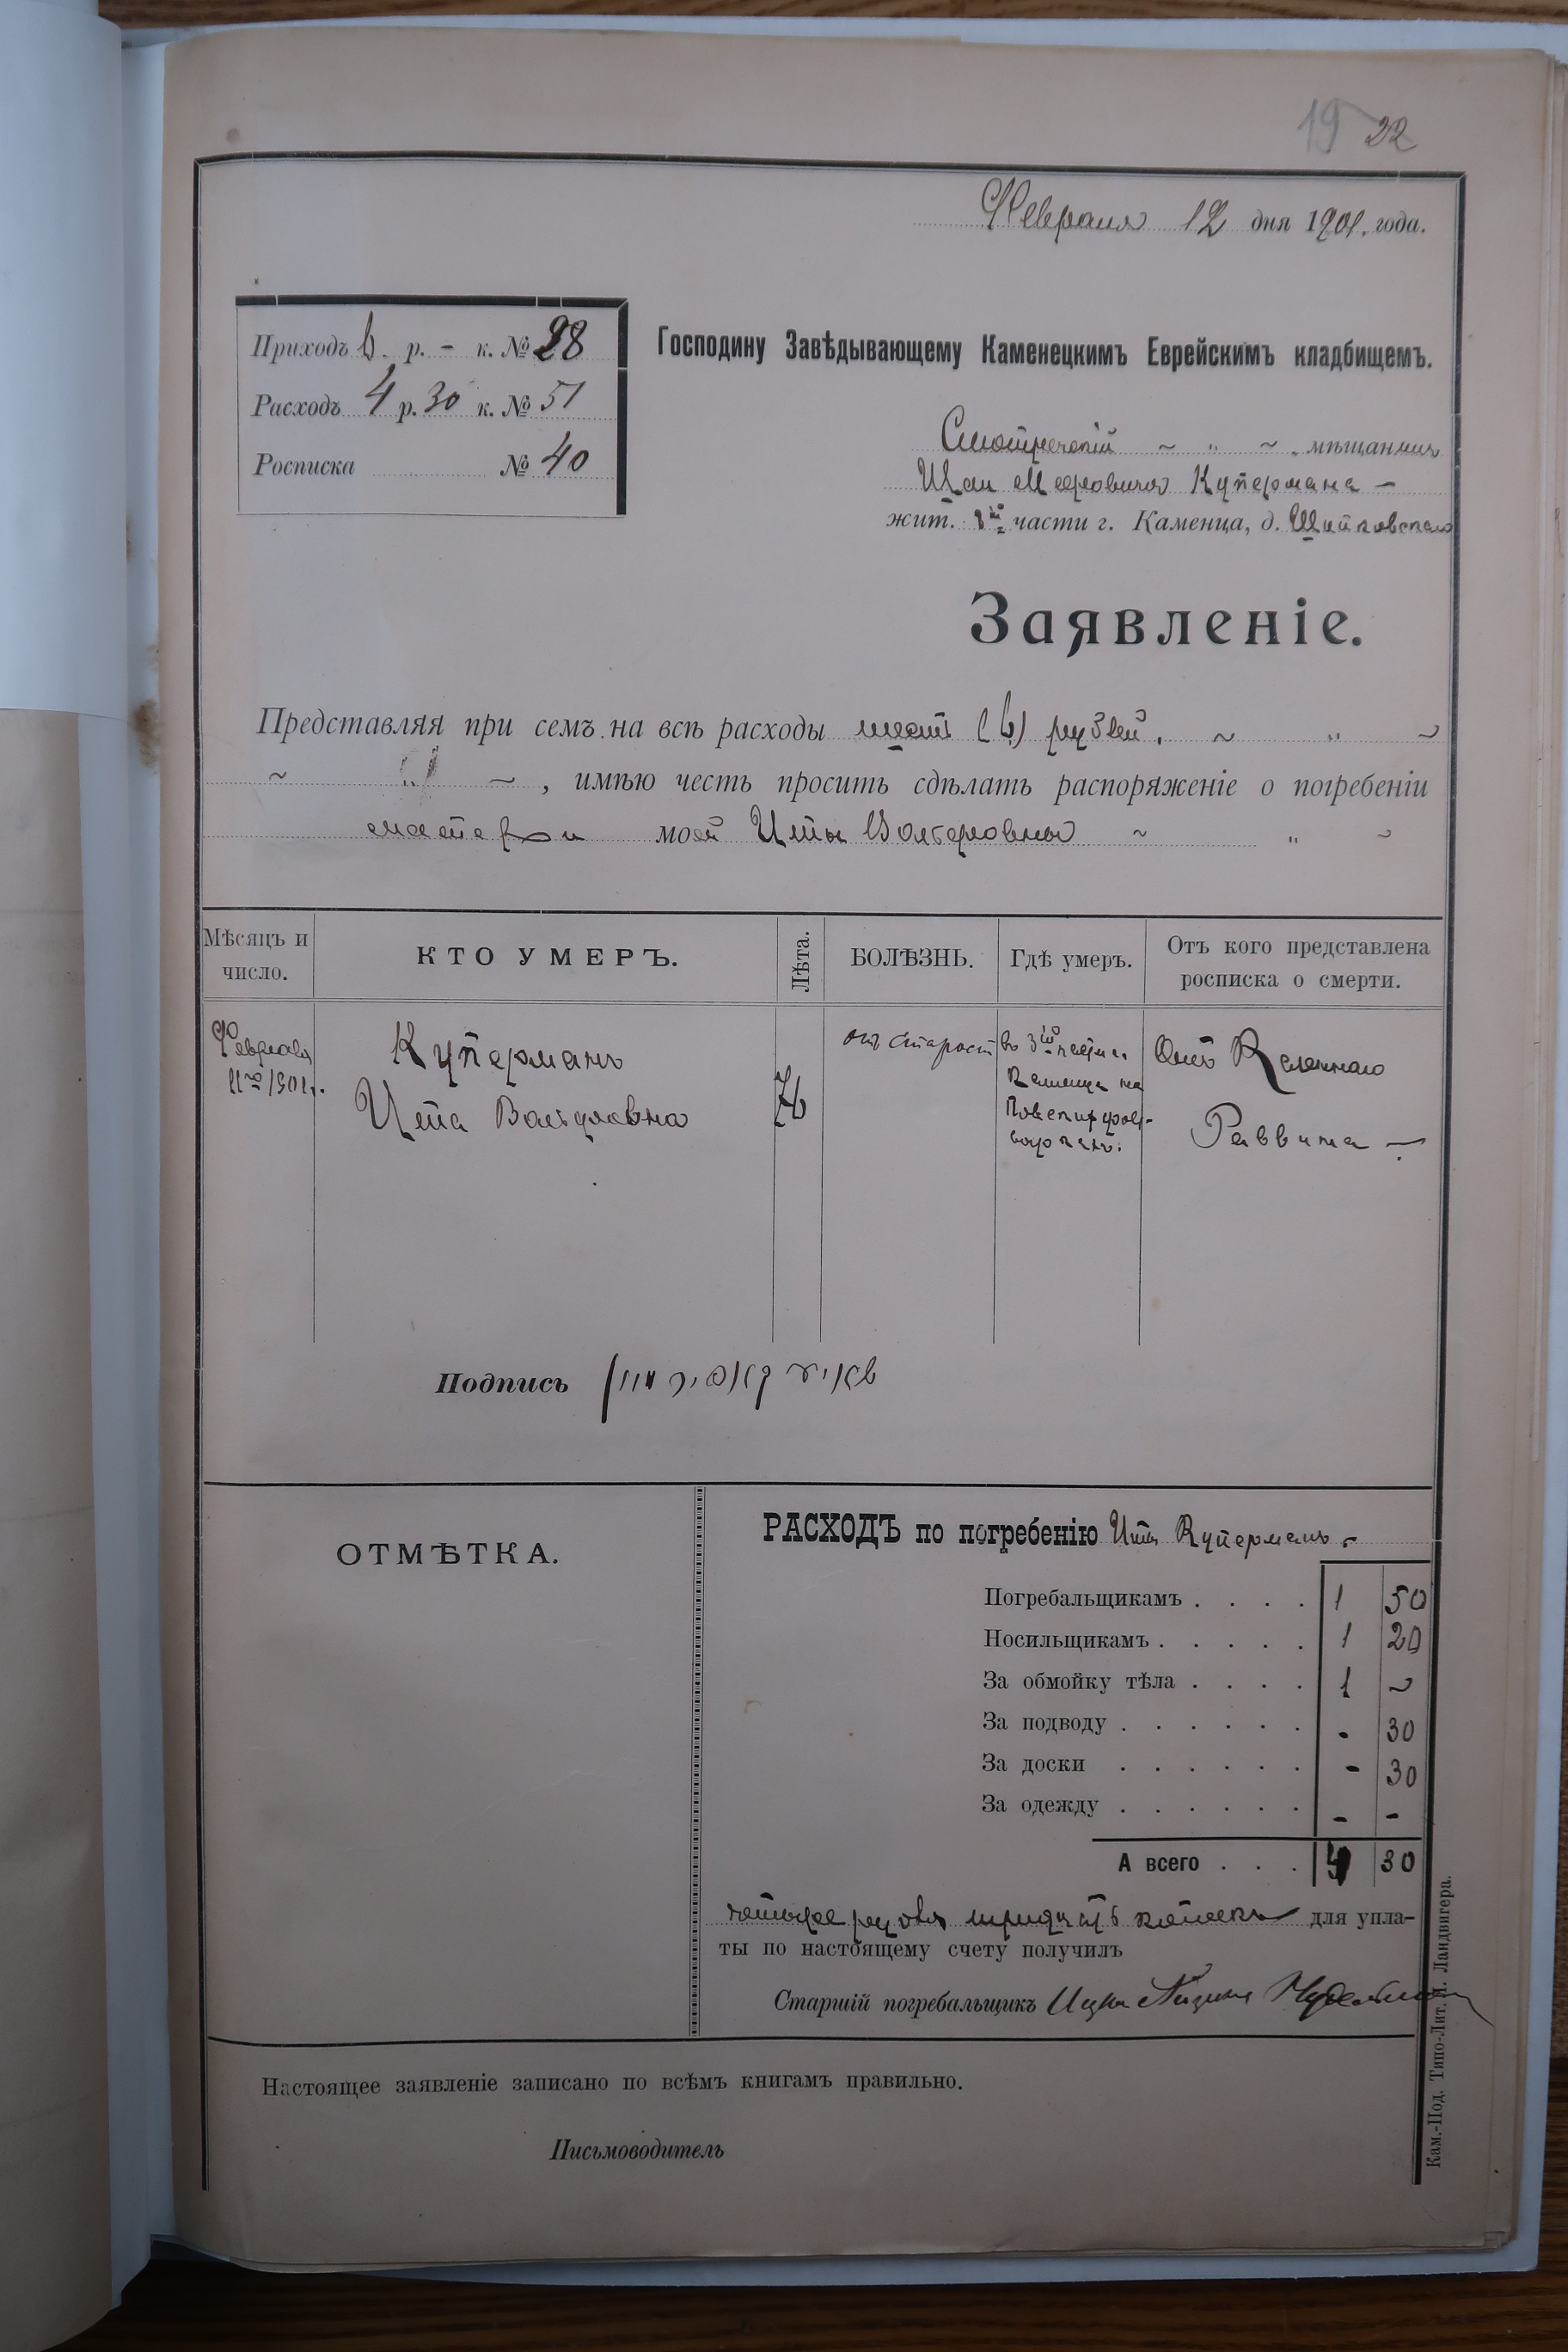 19 22
Февраля 12 дня 1901. года.
Приходъ 6. р. - к. № 28
Расходъ 4 р. 30 к. № 51
Росписка № 40
Господину Завѣдывающему Каменецкимъ Еврейскимъ кладбищемъ.
Смотрическій ~ " ~ мѣщанинъ
Купермана –
жит. части г. Каменца, д.
Заявленіе.
Представляя при семъ на всѣ расходы шесть (6) рублей. ~ " ~
~ " ~, имѣю честь просить сдѣлать распоряженіе о погребеніи
матери моей Иты Волфовны ~ " ~
Мѣсяцъ и число.
КТО УМЕРЪ.
Лѣта.
БОЛѢЗНЬ.
Гдѣ умеръ.
Отъ кого представлена росписка о смерти.
Февраля
11го 1901г.
Куперманъ
Ита
76
отъ старост
въ 3й части
Каменца на
Отъ Казеннаго
Раввина –
Подпись
ОТМѢТКА.
РАСХОДЪ по погребенію Иты Куперманъ.
Погребальщикамъ . . . . 1 50
Носильщикамъ . . . . . 1 20
За обмойку тѣла . . . . 1 ~
За подводу . . . . . . - 30
За доски . . . . . . - 30
За одежду . . . . . . - -
А всего . . . 4 30
четыре рубля тридцать копѣекъ для упла-
ты по настоящему счету получилъ
Старшій погребальщикъ
Настоящее заявленіе записано по всѣмъ книгамъ правильно.
Письмоводитель
Кам.-Под. Типо-Лит. Ландвигера.